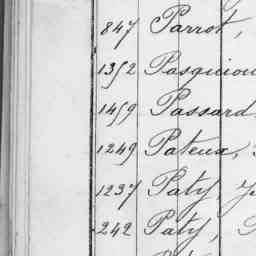 847 Parrot,
1352 Pasquiou
1459 Passard
1249 Pateux,
1237 Paty, J
242 Paty, P